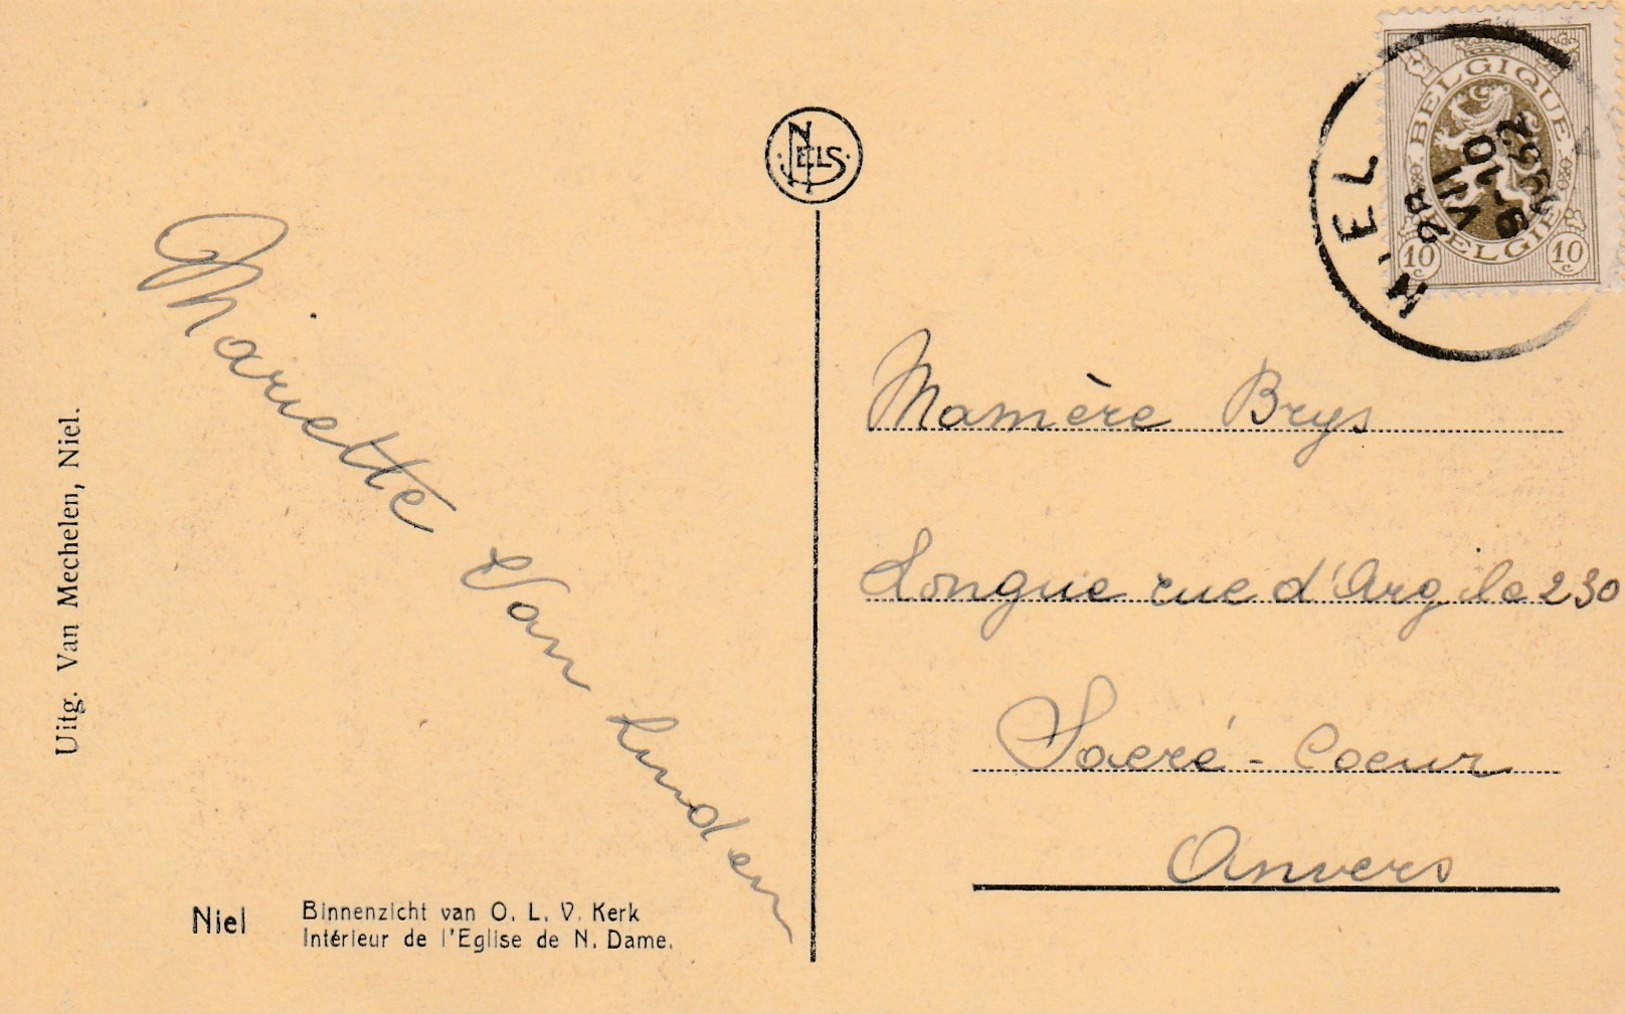 NELS
BELGIQUE
BELGIE
10 c
10 c
NIEL
Mamère Brys
Longue rue d'Argile 230
Sacré-Coeur
Anvers
Mariette Van Linden
Uitg. Van Mechelen, Niel.
Niel
Binnenzicht van O. L. V. Kerk
Intérieur de l'Eglise de N. Dame.